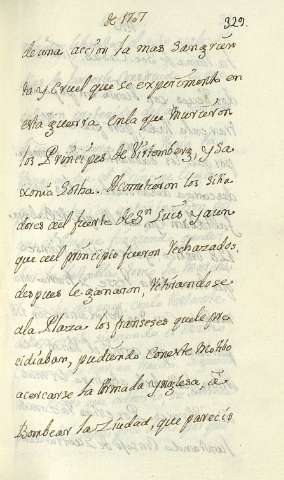 de 1707
329.
de una accion la mas sangrien
ta, y Cruel que se experimentò en
esta guerra, en la que murieron
los Principes de Virtemberg, y Sa
xonia Gotha. Acometieron los sitia
dores aèl fuerte de Sn. Luis, y aun
que aèl principio fueron rechazados,
despues le ganaron, retirandose
à la Plaza los franseses que le pre
cidiaban, pudiendo con este motibo
acercarse la Armada Ynglesa, à
Bombear la Ciudad, que pareciò